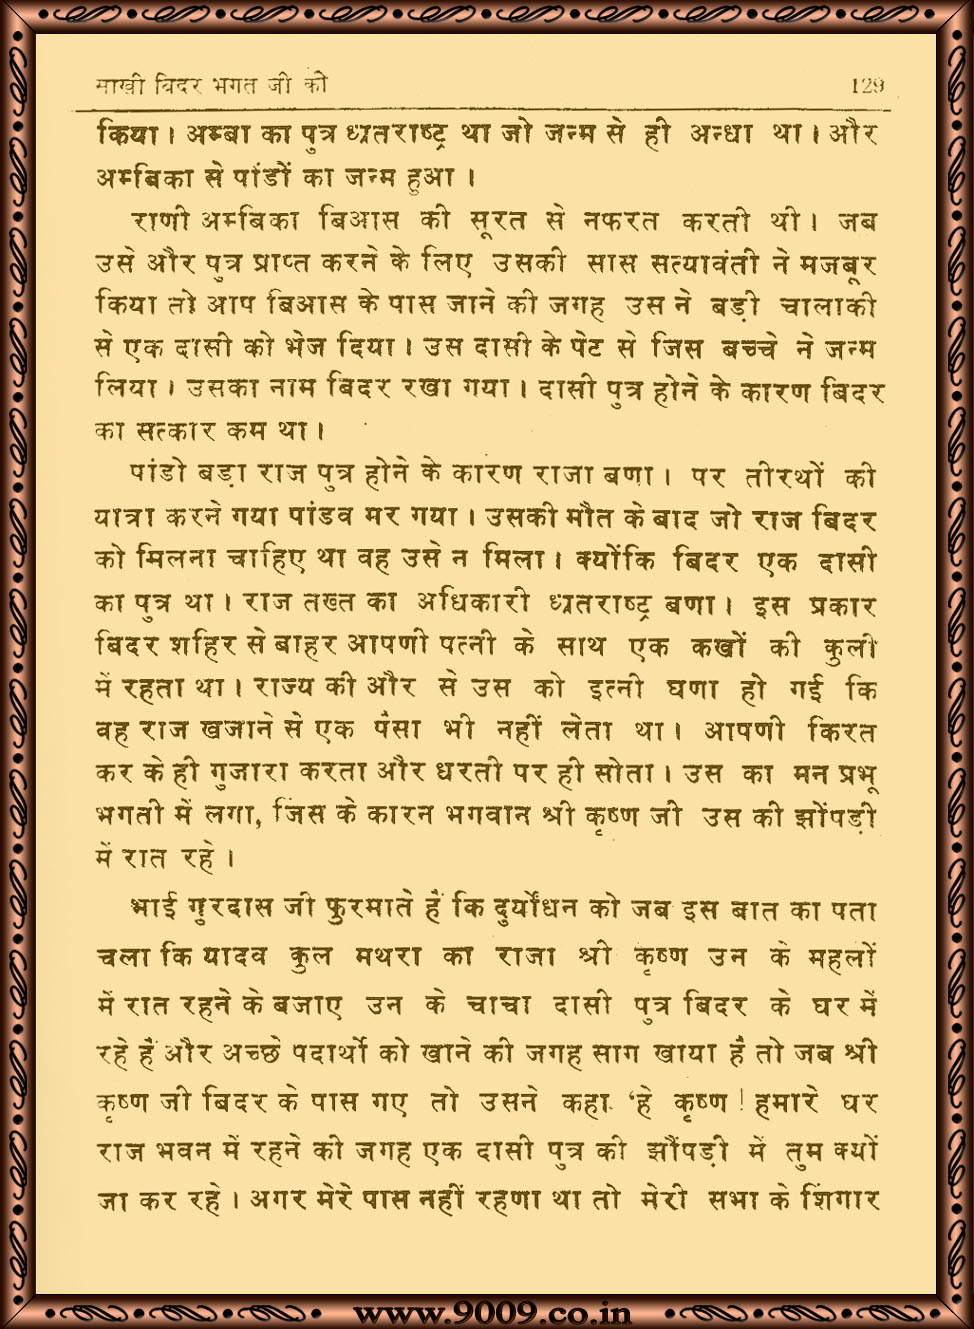 साखी बिदर भगत जी को 129
किया। अम्बा का पुत्र ध्रतराष्ट्र था जो जन्म से ही अन्धा था। और
अम्बिका से पांडों का जन्म हुआ।
राणी अम्बिका बिआस की सूरत से नफरत करती थी। जब
उसे और पुत्र प्राप्त करने के लिए उसकी सास सत्यावंती ने मजबूर
किया तो आप बिआस के पास जाने की जगह उस ने बड़ी चालाकी
से एक दासी को भेज दिया। उस दासी के पेट से जिस बच्चे ने जन्म
लिया। उसका नाम बिदर रखा गया। दासी पुत्र होने के कारण बिदर
का सत्कार कम था।
पांडो बड़ा राज पुत्र होने के कारण राजा बणा। पर तीरथों की
यात्रा करने गया पांडव मर गया। उसकी मौत के बाद जो राज बिदर
को मिलना चाहिए था वह उसे न मिला। क्योंकि बिदर एक दासी
का पुत्र था। राज तख्त का अधिकारी ध्रतराष्ट्र बणा। इस प्रकार
बिदर शहिर से बाहर आपणी पत्नी के साथ एक कखों की कुली
में रहता था। राज्य की और से उस को इत्नी घणा हो गई कि
वह राज खजाने से एक पैसा भी नहीं लेता था। आपणी किरत
कर के ही गुजारा करता और धरती पर ही सोता। उस का मन प्रभू
भगती में लगा, जिस के कारन भगवान श्री कृष्ण जी उस की झोंपड़ी
में रात रहे।
भाई गुरदास जी फुरमाते हैं कि दुर्योधन को जब इस बात का पता
चला कि यादव कुल मथरा का राजा श्री कृष्ण उन के महलों
में रात रहने के बजाए उन के चाचा दासी पुत्र बिदर के घर में
रहे हैं और अच्छे पदार्थो को खाने की जगह साग खाया है तो जब श्री
कृष्ण जी बिदर के पास गए तो उसने कहा 'हे कृष्ण! हमारे घर
राज भवन में रहने की जगह एक दासी पुत्र की झौंपड़ी में तुम क्यों
जा कर रहे। अगर मेरे पास नहीं रहणा था तो मेरी सभा के शिंगार
www.9009.co.in